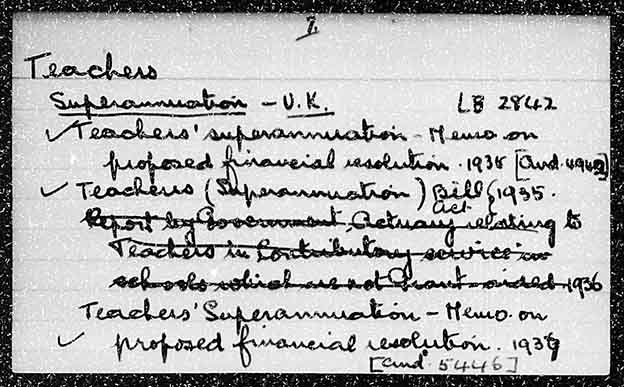 7.
Teachers
Superannuation - U.K. LB 2842
✓ Teachers' superannuation - Memo. on
proposed financial resolution. 1935 [Cmd. 4949]
✓ Teachers (Superannuation) Bill & 1935.
Act
Report by Government Actuary relating to
Teachers in Contributory service in
schools which are not Grant-aided. 1936
Teachers' Superannuation - Memo. on
✓ proposed financial resolution. 1937
[Cmd. 5446]